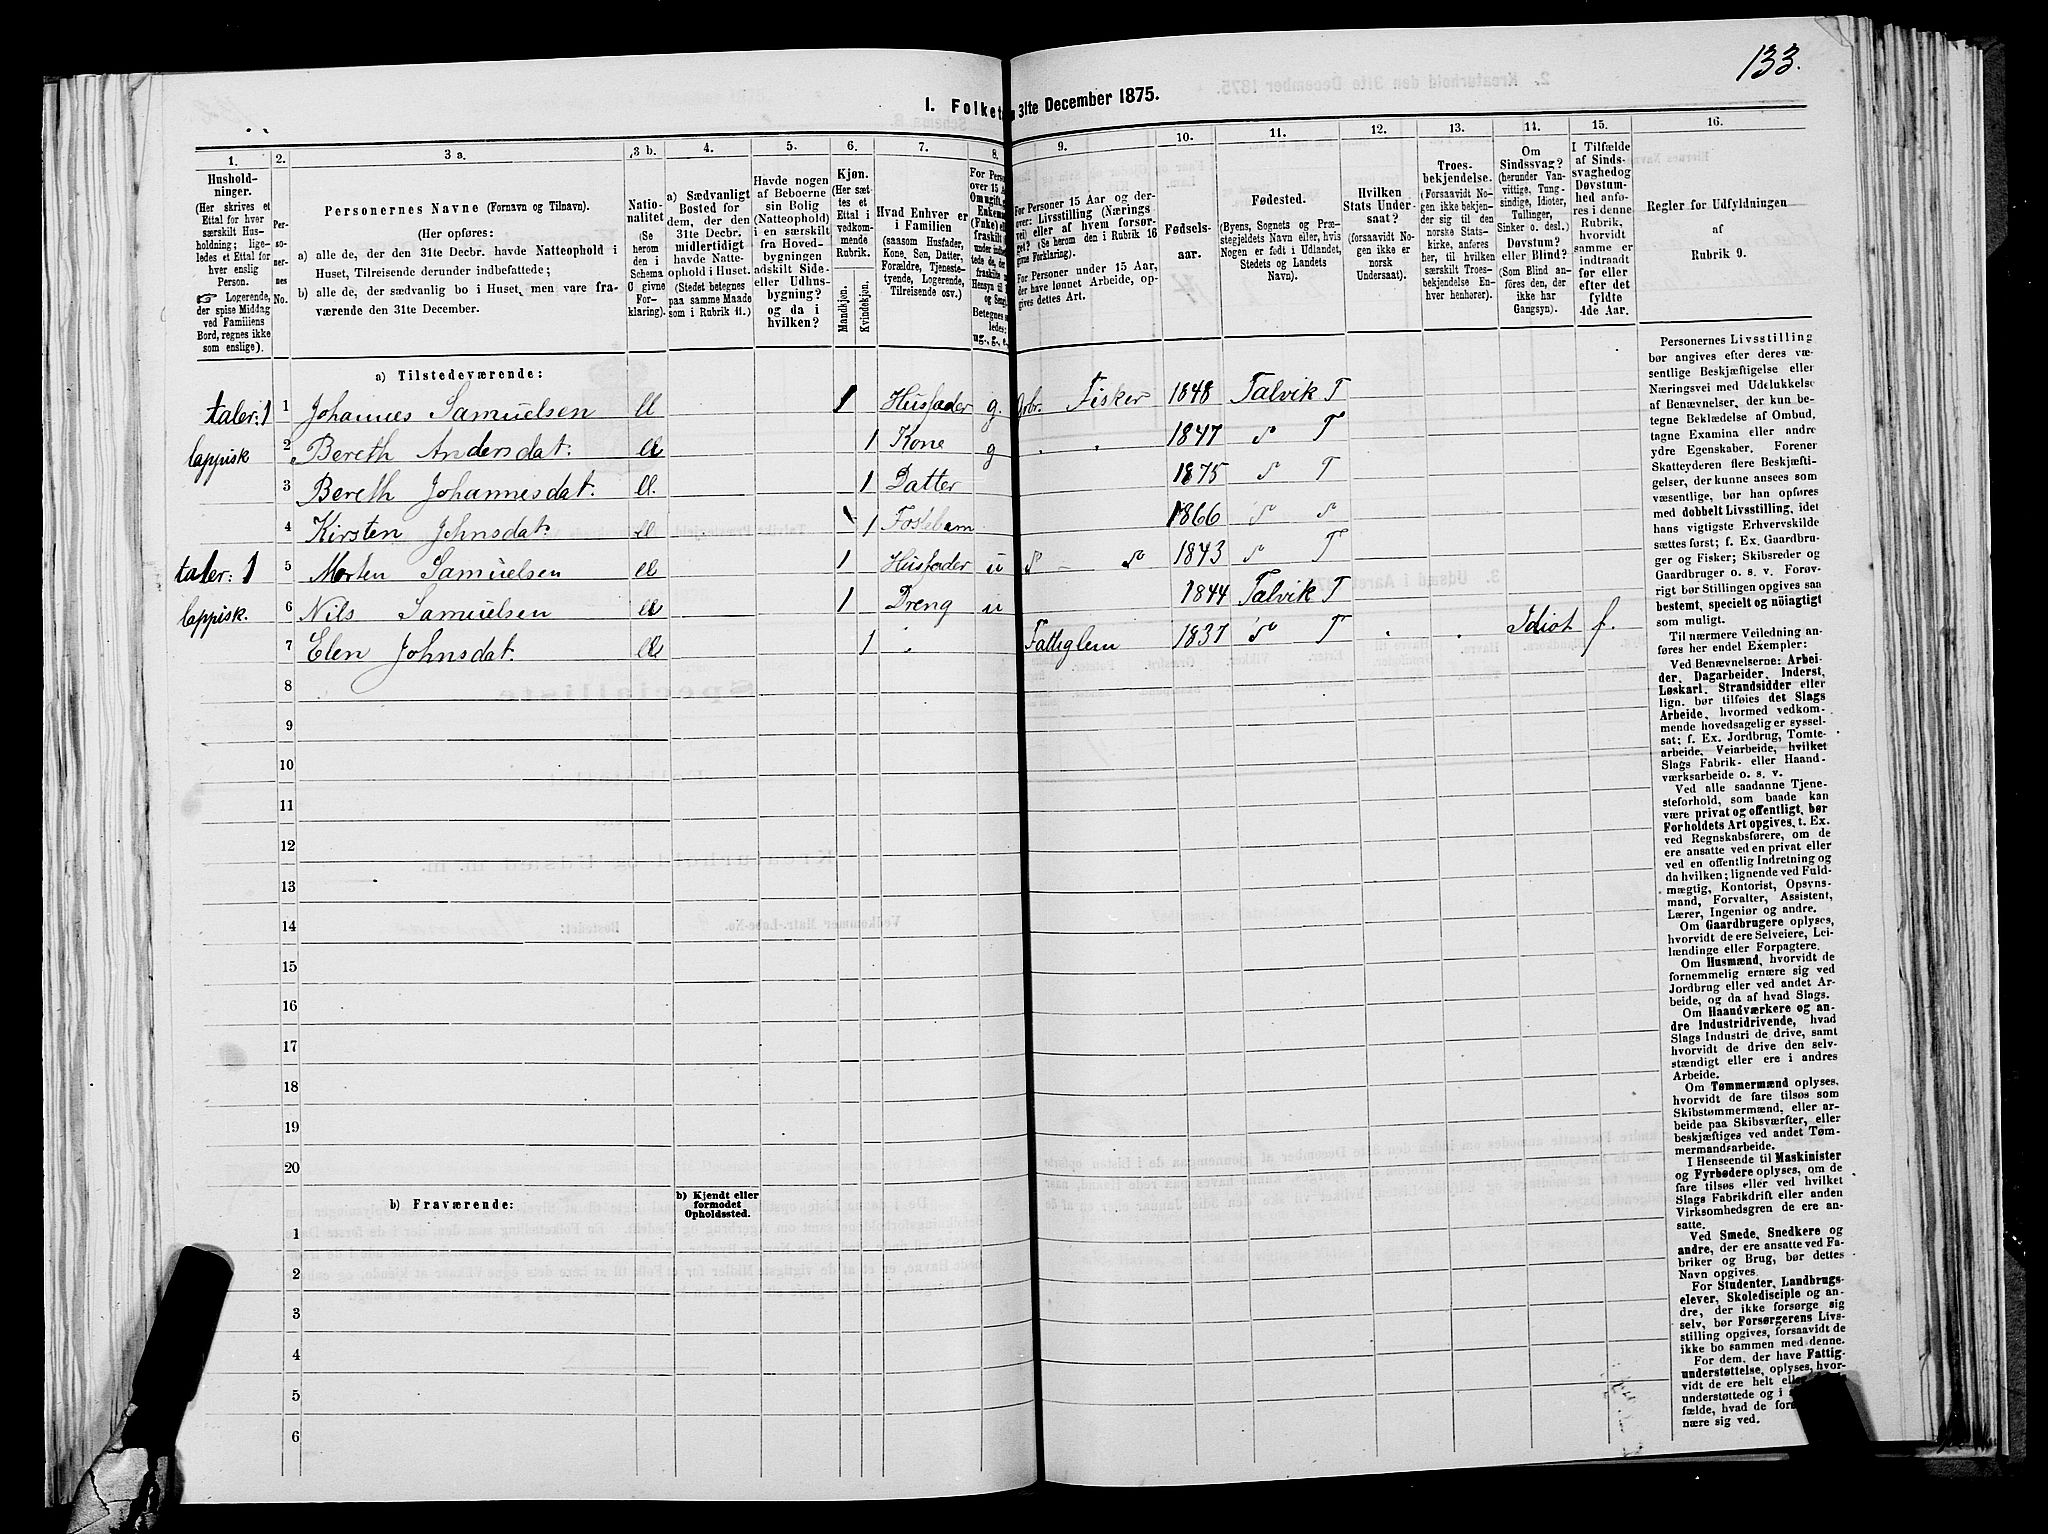 133.
I. Folket 31te December 1875.
1. 2. 3 a. 3 b. 4. 5. 6. 7. 8. 9. 10. 11. 12. 13. 14. 15. 16.
Hushold-
ninger.
(Her skrives et
Ettal for hver
særskilt Hus-
holdning; lige-
ledes et Ettal for
hver enslig
Person.
☞ Logerende,
der spise Middag
ved Familiens
Bord, regnes ikke
som enslige).
Per-
so-
ner-
nes
No.
Personernes Navne (Fornavn og Tilnavn).
(Her opføres:
a) alle de, der den 31te Decbr. havde Natteophold i
Huset, Tilreisende derunder indbefattede;
b) alle de, der sædvanlig bo i Huset, men vare fra-
værende den 31te December.
Natio-
nalitet
(Se
herom
den i
Schema
C givne
For-
klaring).
a) Sædvanligt
Bosted for
dem, der den
31te Decbr.
midlertidigt
havde Natte-
ophold i Huset.
(Stedet betegnes
paa samme Maade
som i Rubrik 11.)
Havde nogen
af Beboerne
sin Bolig
(Natteophold)
i en særskilt
fra Hoved-
bygningen
adskilt Side-
eller Udhus-
bygning?
og da i
hvilken?
Kjøn.
(Her sæt-
tes et
Ettal i
vedkom-
mende
Rubrik.
Mandkjøn.
Kvindekjøn.
Hvad Enhver er
i Familien
(saasom Husfader,
Kone, Søn, Datter,
Forældre, Tjeneste-
tyende, Logerende,
Tilreisende osv.)
For Person
over 15 Aa
Omugift,
Enkem
(Enke) el
fraskilt
Betegnes
ledes:
ug., g., e.,
For Personer 15 Aar og der-
over: Livsstilling (Nærings
vei) eller af hvem forsør-
get? (Se herom den i Rubrik 16
givne Forklaring).
For Personer under 15 Aar,
der have lønnet Arbeide, op-
gives dettes Art.
Fødsels-
aar.
Fødested.
(Byens, Sognets og Præ-
stegjeldets Navn eller, hvis
Nogen er født i Udlandet,
Stedets og Landets
Navn).
Hvilken
Stats Under-
saat?
(forsaavidt No-
gen ikke er
norsk
Undersaat).
Troes-
bekjendelse.
(Forsaavidt No-
gen ikke bekjen-
der sig til den
norske Stats-
kirke, anføres
her, til hvilken
særskilt Troes-
bekjendelse En-
hver henhører).
Om
Sindssvag?
(herunder Van-
vittige, Tung-
sindige, Idioter,
Tullinger,
Sinker o. desl.)
Døvstum?
eller Blind?
(Som Blind an-
føres den, der
ikke har
Gangsyn).
I Tilfælde
af Sinds-
svaghed og
Døvstum-
hed anfø-
res i denne
Rubrik,
hvorvidt
samme er
indtraadt
før eller
efter det
fyldte
4de Aar.
Regler for Udfyldningen
af
Rubrik 9.
a) Tilstedeværende:
taler: 1 1 Johannes Samuelsen ll 1 Husfader g. Grbr. Fisker 1848 Talvik T
lappisk 2 Bereth Andersdat. ll 1 Kone g " 1847 " T
3 Bereth Johannesdat. ll. 1 Datter 1875 " T
4 Kirsten Johnsdat. ll 1 Fosterbarn 1866 " "
taler: 1 5 Morten Samuelsen ll 1 Husfader u " - " 1843 " T
lappisk. 6 Nils Samuelsen ll 1 Dreng u 1844 Talvik T
7 Elen Johnsdat. ll 1 " Fattiglem 1837 " T . . Idiot f.
8
9
10
11
12
13
14
15
16
17
18
19
20
b) Fraværende:
b) Kjendt eller
formodet
Opholdssted.
1
2
3
4
5
6
Personernes Livsstilling
bør angives efter deres væ-
sentlige Beskjæftigelse eller
Næringsvei med Udelukkelse
af Benævnelser, der kun be-
tegne Beklædelse af Ombud,
tagne Examina eller andre
ydre Egenskaber. Forener
Skatteyderen flere Beskjæfti-
gelser, der kunne ansees som
væsentlige, bør han opføres
med dobbelt Livsstilling, idet
hans vigtigste Erhvervskilde
sættes først; f. Ex. Gaardbru-
ger og Fisker; Skibsreder og
Gaardbruger o. s. v. Forøv-
rigt bør Stillingen opgives saa
bestemt, specielt og nöiagtigt
som muligt.
Til nærmere Veiledning an-
føres her endel Exempler:
Ved Benævnelserne: Arbei-
der, Dagarbeider, Inderst,
Løskarl, Strandsidder eller
lign. bør tilføies det Slags
Arbeide, hvormed vedkom-
mende hovedsagelig er syssel-
sat; f. Ex. Jordbrug, Tomte-
arbeide, Veiarbeide, hvilket
Slags Fabrik- eller Haand-
værksarbeide o. s. v.
Ved alle saadanne Tjene-
steforhold, som baade kan
være privat og offentligt, bør
Forholdets Art opgives, t. Ex.
ved Regnskabsførere, om de
ere ansatte ved en privat eller
ved en offentlig Indretning og
da hvilken; lignende ved Fuld-
mægtig, Kontorist, Opsyns-
mand, Forvalter, Assistent,
Lærer, Ingeniør og andre.
Om Gaardbrugere oplyses,
hvorvidt de ere Selveiere, Lei-
lændinge eller Forpagtere.
Om Husmænd, hvorvidt de
fornemmelig ernære sig ved
Jordbrug eller ved andet Ar-
beide, og da af hvad Slags.
Om Haandværkere og an-
dre Industridrivende, hvad
Slags Industri de drive, samt
hvorvidt de drive den selv-
stændigt eller ere i andres
Arbeide.
Om Tømmermænd oplyses,
hvorvidt de fare tilsøs som
Skibstømmermænd, eller ar-
beide paa Skibsværfter, eller
beskjæftiges ved andet Tøm-
mermandsarbeide.
I Henseende til Maskinister
og Fyrbødere oplyses, om de
fare tilsøs eller ved hvilket
Slags Fabrikdrift eller anden
Virksomhedsgren de ere an-
satte.
Ved Smede, Snedkere og
andre, der ere ansatte ved Fa-
briker og Brug, bør dettes
Navn opgives.
For Studenter, Landbrugs-
elever, Skoledisciple og an-
dre, der ikke forsørge sig
selv, bør Forsørgerens Livs-
stilling opgives, forsaavidt de
ikke bo sammen med denne.
For dem, der have Fattig-
understøttelse, oplyses, hvor-
vidt de ere helt elle
understøttede og i
fælde, hvad de for
nære sig ved.